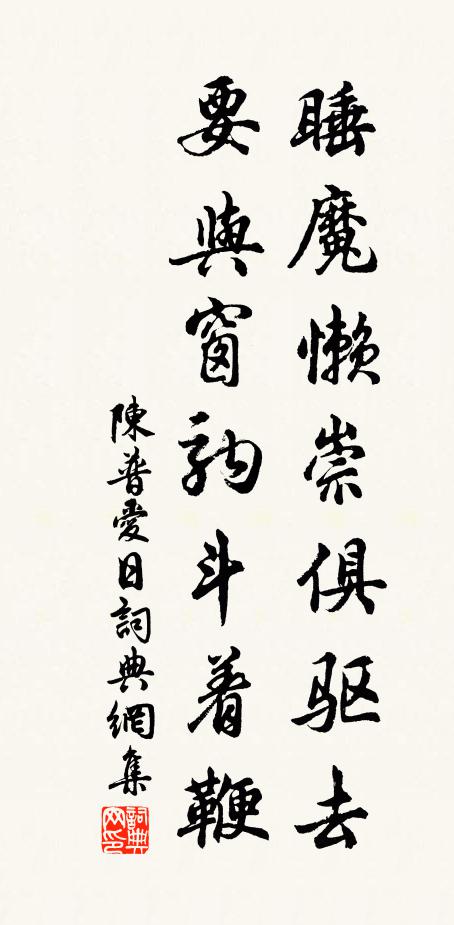 睡魔懒崇俱驱去
要與窗驹斗着鞭
陳普愛日詞典網集
詞典网印